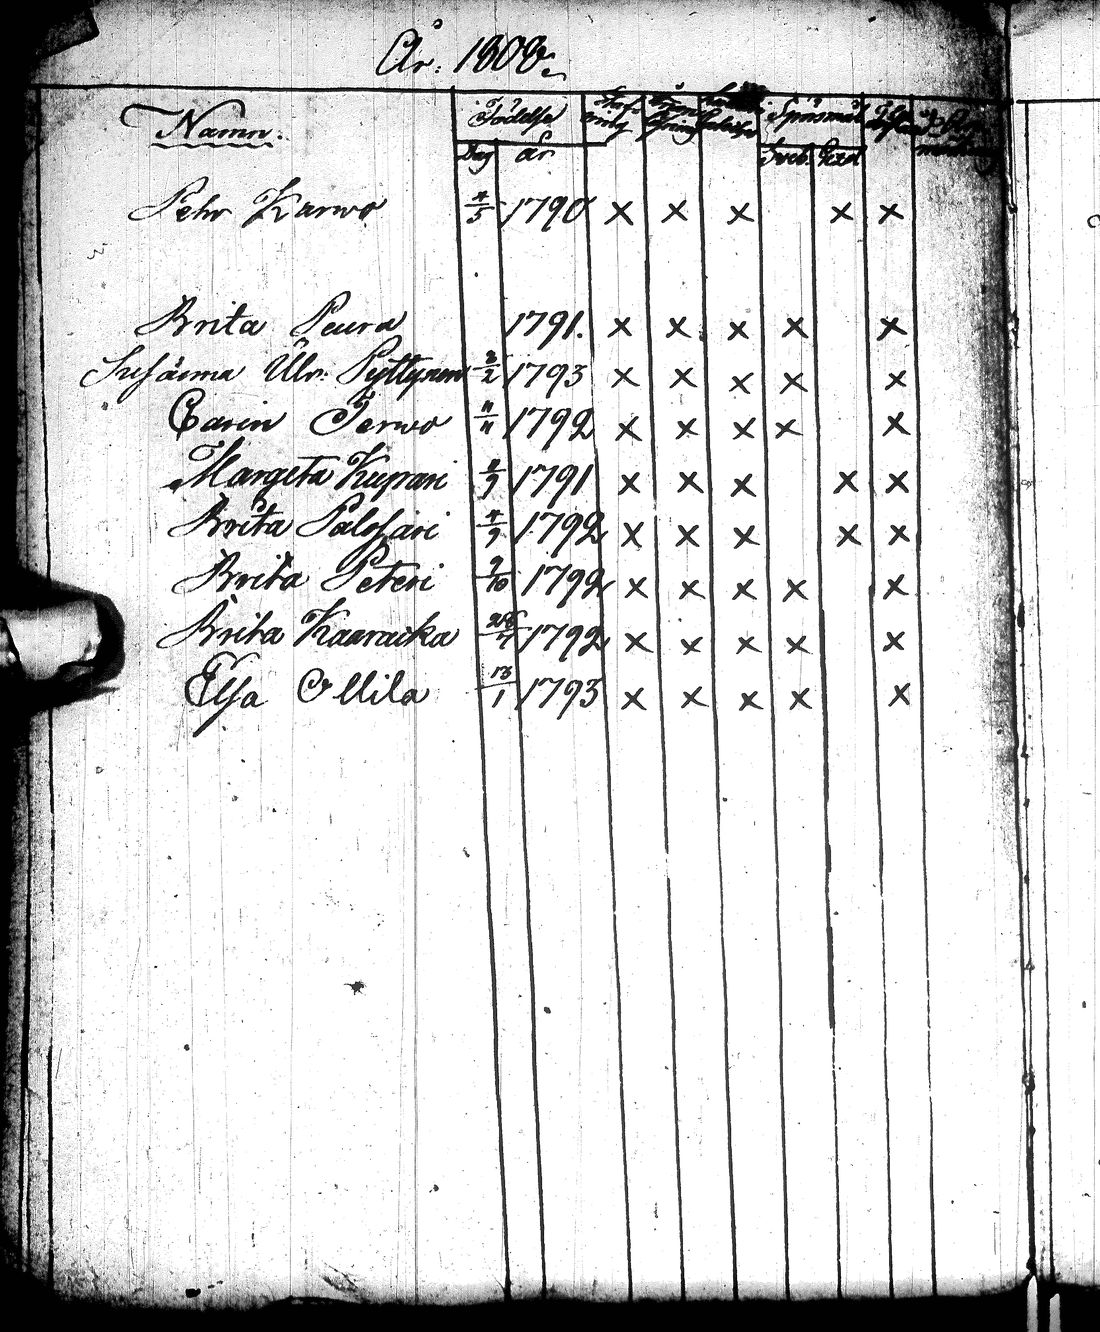 År: 1808.
Namn. Födelse Spörsmål
Dag år Sveb. Gezel
Pehr Karwo 4/5 1790 x x x x x
Brita Peura 1791. x x x x x
Susanna Ulr: Pyttynen 3/2 1793 x x x x x
Carin Terwo 11/11 1792 x x x x x
Margeta Kupari 1791 x x x x x
Brita Palosari 4/9 1792 x x x x x
Brita Peteri 9/10 1792 x x x x x
Brita Kaaracka 1792 x x x x x
Elsa Ollila 1793 x x x x x